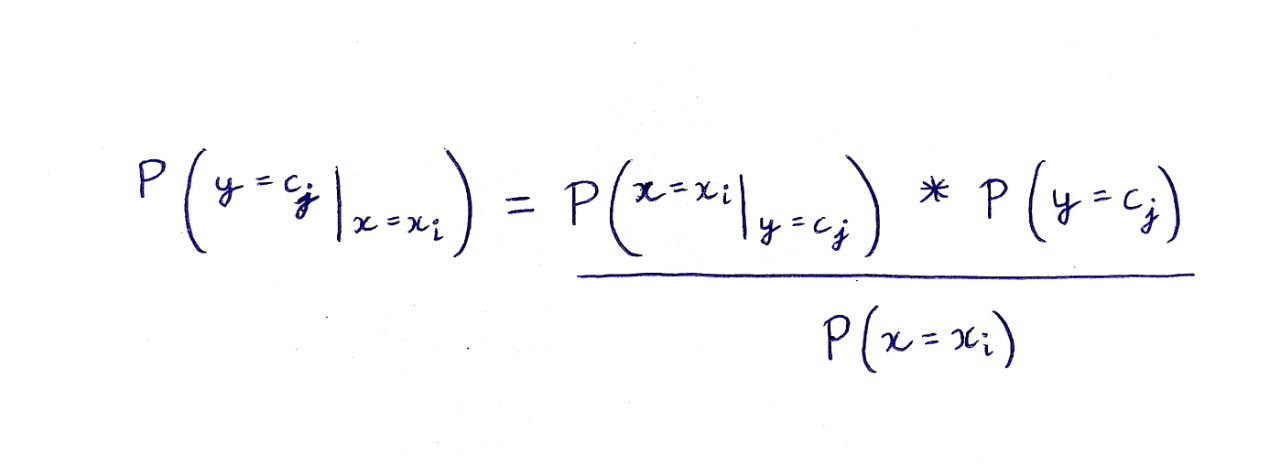 P(y=cj|x=xi) = P(x=xi|y=cj) * P(y=cj)
P(x=xi)